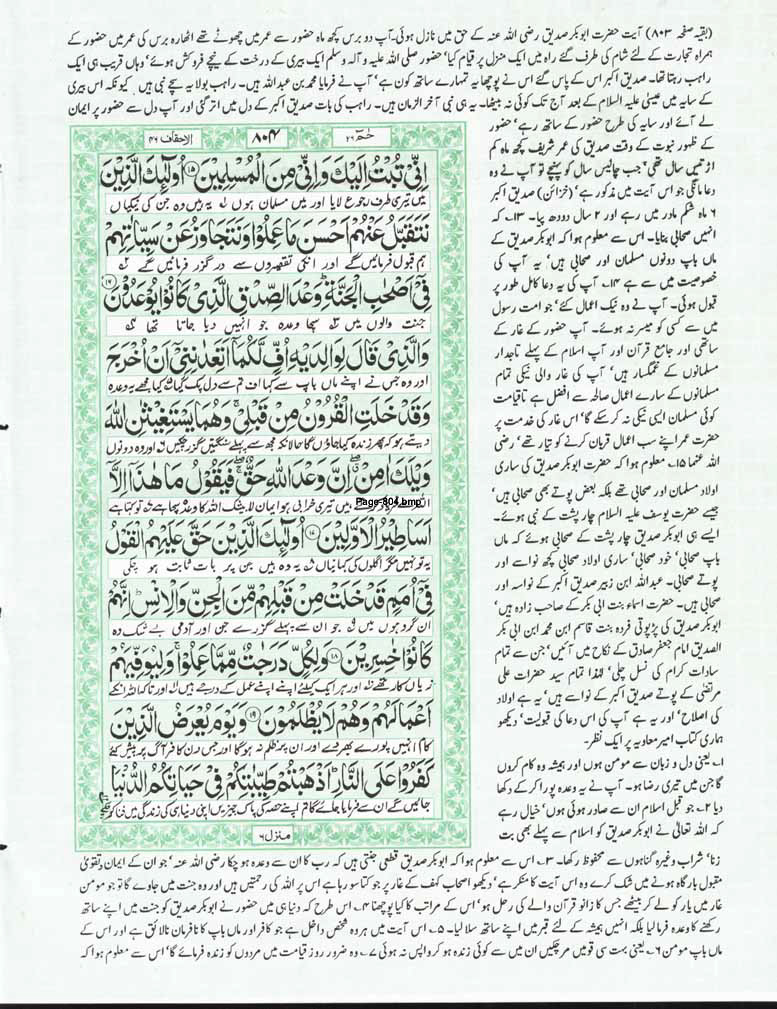 (بقیہ صفحہ ۸۰۳) آیت حضرت ابوبکر صدیق رضی اللہ عنہ کے حق میں نازل ہوئی۔ آپ دو برس کچھ ماہ حضور سے عمر میں چھوٹے تھے اٹھارہ برس کی عمر میں حضور کے
ہمراہ تجارت کے لئے شام کی طرف گئے راہ میں ایک منزل پر قیام کیا' حضور صلی اللہ علیہ و آلہ وسلم ایک بیری کے درخت کے نیچے فروکش ہوئے' وہاں قریب ہی ایک
راہب رہتا تھا۔ صدیق اکبر اس کے پاس گئے اس نے پوچھا یہ تمہارے ساتھ کون ہے' آپ نے فرمایا محمد بن عبداللہ ہیں۔ راہب بولا یہ سچے نبی ہیں کیونکہ اس بیری
کے سایہ میں عیسیٰ علیہ السلام کے بعد آج تک کوئی نہ بیٹھا۔ یہ ہی نبی آخر الزمان ہیں۔ راہب کی بات صدیق اکبر کے دل میں اتر گئی اور آپ دل سے حضور پر ایمان
لے آئے اور سایہ کی طرح حضور کے ساتھ رہے' حضور
کے ظہور نبوت کے وقت صدیق کی عمر شریف کچھ ماہ کم
اڑتیس سال تھی' جب چالیس سال کو پہنچے تو آپ نے وہ
دعا مانگی جو اس آیت میں مذکور ہے' (خزائن) صدیق اکبر
۶ ماہ شکم مادر میں رہے اور ۲ سال دودھ پیا۔ ۱۳۔ کہ
انہیں صحابی بنایا۔ اس سے معلوم ہوا کہ ابوبکر صدیق کے
ماں باپ دونوں مسلمان اور صحابی ہیں' یہ آپ کی
خصوصیت میں سے ہے ۱۴۔ آپ کی یہ دعا کامل طور پر
قبول ہوئی۔ آپ نے وہ نیک اعمال کئے' جو امت رسول
میں سے کسی کو میسر نہ ہوئے۔ آپ حضور کے غار کے
ساتھی اور جامع قرآن اور آپ اسلام کے پہلے تاجدار
مسلمانوں کے غمگسار ہیں' آپ کی غار والی نیکی تمام
مسلمانوں کے سارے اعمال صالحہ سے افضل ہے تاقیامت
کوئی مسلمان ایسی نیکی نہ کر سکے گا' اس غار کی خدمت پر
حضرت عمر اپنے سب اعمال قربان کرنے کو تیار تھے' رضی
اللہ عنہما ۱۵۔ معلوم ہوا کہ حضرت ابوبکر صدیق کی ساری
اولاد مسلمان اور صحابی تھے بلکہ بعض پوتے بھی صحابی ہیں'
جیسے حضرت یوسف علیہ السلام چار پشت کے نبی ہوئے۔
ایسے ہی ابوبکر صدیق چار پشت کے صحابی ہوئے کہ ماں
باپ صحابی' خود صحابی' ساری اولاد صحابی کچھ نواسے اور
پوتے صحابی۔ عبداللہ ابن زبیر صدیق اکبر کے نواسہ اور
صحابی ہیں۔ حضرت اسماء بنت ابی بکر کے صاحب زادہ ہیں'
ابوبکر صدیق کی پڑپوتی فروہ بنت قاسم ابن محمد ابن ابی بکر
الصدیق امام جعفر صادق کے نکاح میں آئیں' جن سے تمام
سادات کرام کی نسل چلی' لہٰذا تمام سید حضرات علی
مرتضیٰ کے پوتے صدیق اکبر کے نواسے ہیں' یہ ہے اولاد
کی اصلاح' اور یہ ہے آپ کی اس دعا کی قبولیت' دیکھو
ہماری کتاب امیر معاویہ پر ایک نظر۔
۱۔ یعنی دل و زبان سے مومن ہوں اور ہمیشہ وہ کام کروں
گا جن میں تیری رضا ہو۔ آپ نے یہ وعدہ پورا کر کے دکھا
دیا ۲۔ جو قبل اسلام ان سے صادر ہوئی ہوں' خیال رہے
کہ اللہ تعالیٰ نے ابوبکر صدیق کو اسلام سے پہلے بھی بت
حٰمٓ ۲۶ ۸۰۴ الاحقاف ۴۶
اِنِّیْ تُبْتُ اِلَیْكَ وَاِنِّیْ مِنَ الْمُسْلِمِیْنَ ۱۵ اُولٰٓئِكَ الَّذِیْنَ
میں تیری طرف رجوع لایا اور میں مسلمان ہوں یہ ہیں وہ جن کی نیکیاں
نَتَقَبَّلُ عَنْهُمْ اَحْسَنَ مَا عَمِلُوْا وَنَتَجَاوَزُ عَنْ سَیِّاٰتِهِمْ
ہم قبول فرمائیں گے اور انکی تقصیروں سے درگزر فرمائیں گے
فِیْۤ اَصْحٰبِ الْجَنَّةِ ؕ وَعْدَ الصِّدْقِ الَّذِیْ كَانُوْا یُوْعَدُوْنَ ۱۶
جنت والوں میں سچا وعدہ جو انہیں دیا جاتا تھا
وَالَّذِیْ قَالَ لِوَالِدَیْهِ اُفٍّ لَّكُمَاۤ اَتَعِدٰنِنِیْۤ اَنْ اُخْرَجَ
اور وہ جس نے اپنے ماں باپ سے کہا اف تم سے دل پک گیا کیا مجھے یہ وعدہ
وَقَدْ خَلَتِ الْقُرُوْنُ مِنْ قَبْلِیْ ۚ وَهُمَا یَسْتَغِیْثٰنِ اللّٰهَ
دیتے ہو کہ پھر زندہ کیا جاؤں گا حالانکہ مجھ سے پہلے سنگتیں گزر چکیں اور وہ دونوں
وَیْلَكَ اٰمِنْ ۖ اِنَّ وَعْدَ اللّٰهِ حَقٌّ ۖ فَیَقُوْلُ مَا هٰذَاۤ اِلَّاۤ
ہیں تیری خرابی ہو ایمان لا بیشک اللہ کا وعدہ سچا ہے تو کہتا ہے
Page-804.bmp
اَسَاطِیْرُ الْاَوَّلِیْنَ ۱۷ اُولٰٓئِكَ الَّذِیْنَ حَقَّ عَلَیْهِمُ الْقَوْلُ
یہ تو نہیں مگر اگلوں کی کہانیاں یہ وہ ہیں جن پر بات ثابت ہو چکی
فِیْۤ اُمَمٍ قَدْ خَلَتْ مِنْ قَبْلِهِمْ مِّنَ الْجِنِّ وَالْاِنْسِ ؕ اِنَّهُمْ
ان گروہوں میں جو ان سے پہلے گزرے جن اور آدمی بے شک وہ
كَانُوْا خٰسِرِیْنَ ۱۸ وَلِكُلٍّ دَرَجٰتٌ مِّمَّا عَمِلُوْا ۚ وَلِیُوَفِّیَهُمْ
زیاں کار تھے اور ہر ایک کیلئے اپنے اپنے عمل کے درجے ہیں اور تاکہ اللہ انکے
اَعْمَالَهُمْ وَهُمْ لَا یُظْلَمُوْنَ ۱۹ وَیَوْمَ یُعْرَضُ الَّذِیْنَ
کام انہیں پورے بھر دے اور ان پر ظلم نہ ہوگا اور جس دن کافر آگ پر پیش کئے
كَفَرُوْا عَلَی النَّارِ ؕ اَذْهَبْتُمْ طَیِّبٰتِكُمْ فِیْ حَیَاتِكُمُ الدُّنْیَا
جائیں گے ان سے فرمایا جائے گا تم اپنے حصہ کی پاک چیزیں اپنی دنیا ہی کی زندگی میں فنا کر چکے
منزل ۶
زنا' شراب وغیرہ گناہوں سے محفوظ رکھا۔ ۳۔ اس سے معلوم ہوا کہ ابوبکر صدیق قطعی جنتی ہیں کہ رب کا ان سے وعدہ ہو چکا رضی اللہ عنہ' جو ان کے ایمان و تقویٰ
مقبول بارگاہ ہونے میں شک کرے وہ اس آیت کا منکر ہے' دیکھو اصحاب کہف کے غار پر جو کتا سو رہا ہے اس پر اللہ کی رحمتیں ہیں اور وہ جنت میں جاوے گا تو جو مومن
غار میں یار کو لے کر بیٹھے جس کا زانو قرآن والے کی رحل ہو' اس کے مراتب کا کیا پوچھنا ۴۔ اس طرح کہ دنیا ہی میں حضور نے ابوبکر صدیق کو جنت میں اپنے ساتھ
رکھنے کا وعدہ فرما لیا بلکہ انہیں ہمیشہ کے لئے قبر میں اپنے ساتھ سلا لیا۔ ۵۔ اس آیت میں ہر وہ شخص داخل ہے جو کافر اور ماں باپ کا نافرمان نالائق ہے اور اس کے
ماں باپ مومن ۶۔ یعنی بہت سی قومیں مر چکیں ان میں سے کوئی زندہ ہو کر واپس نہ ہوئی ۷۔ وہ ضرور روز قیامت میں مردوں کو زندہ فرمائے گا' اس سے معلوم ہوا کہ